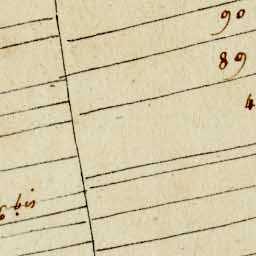 90
89
4
6 bis